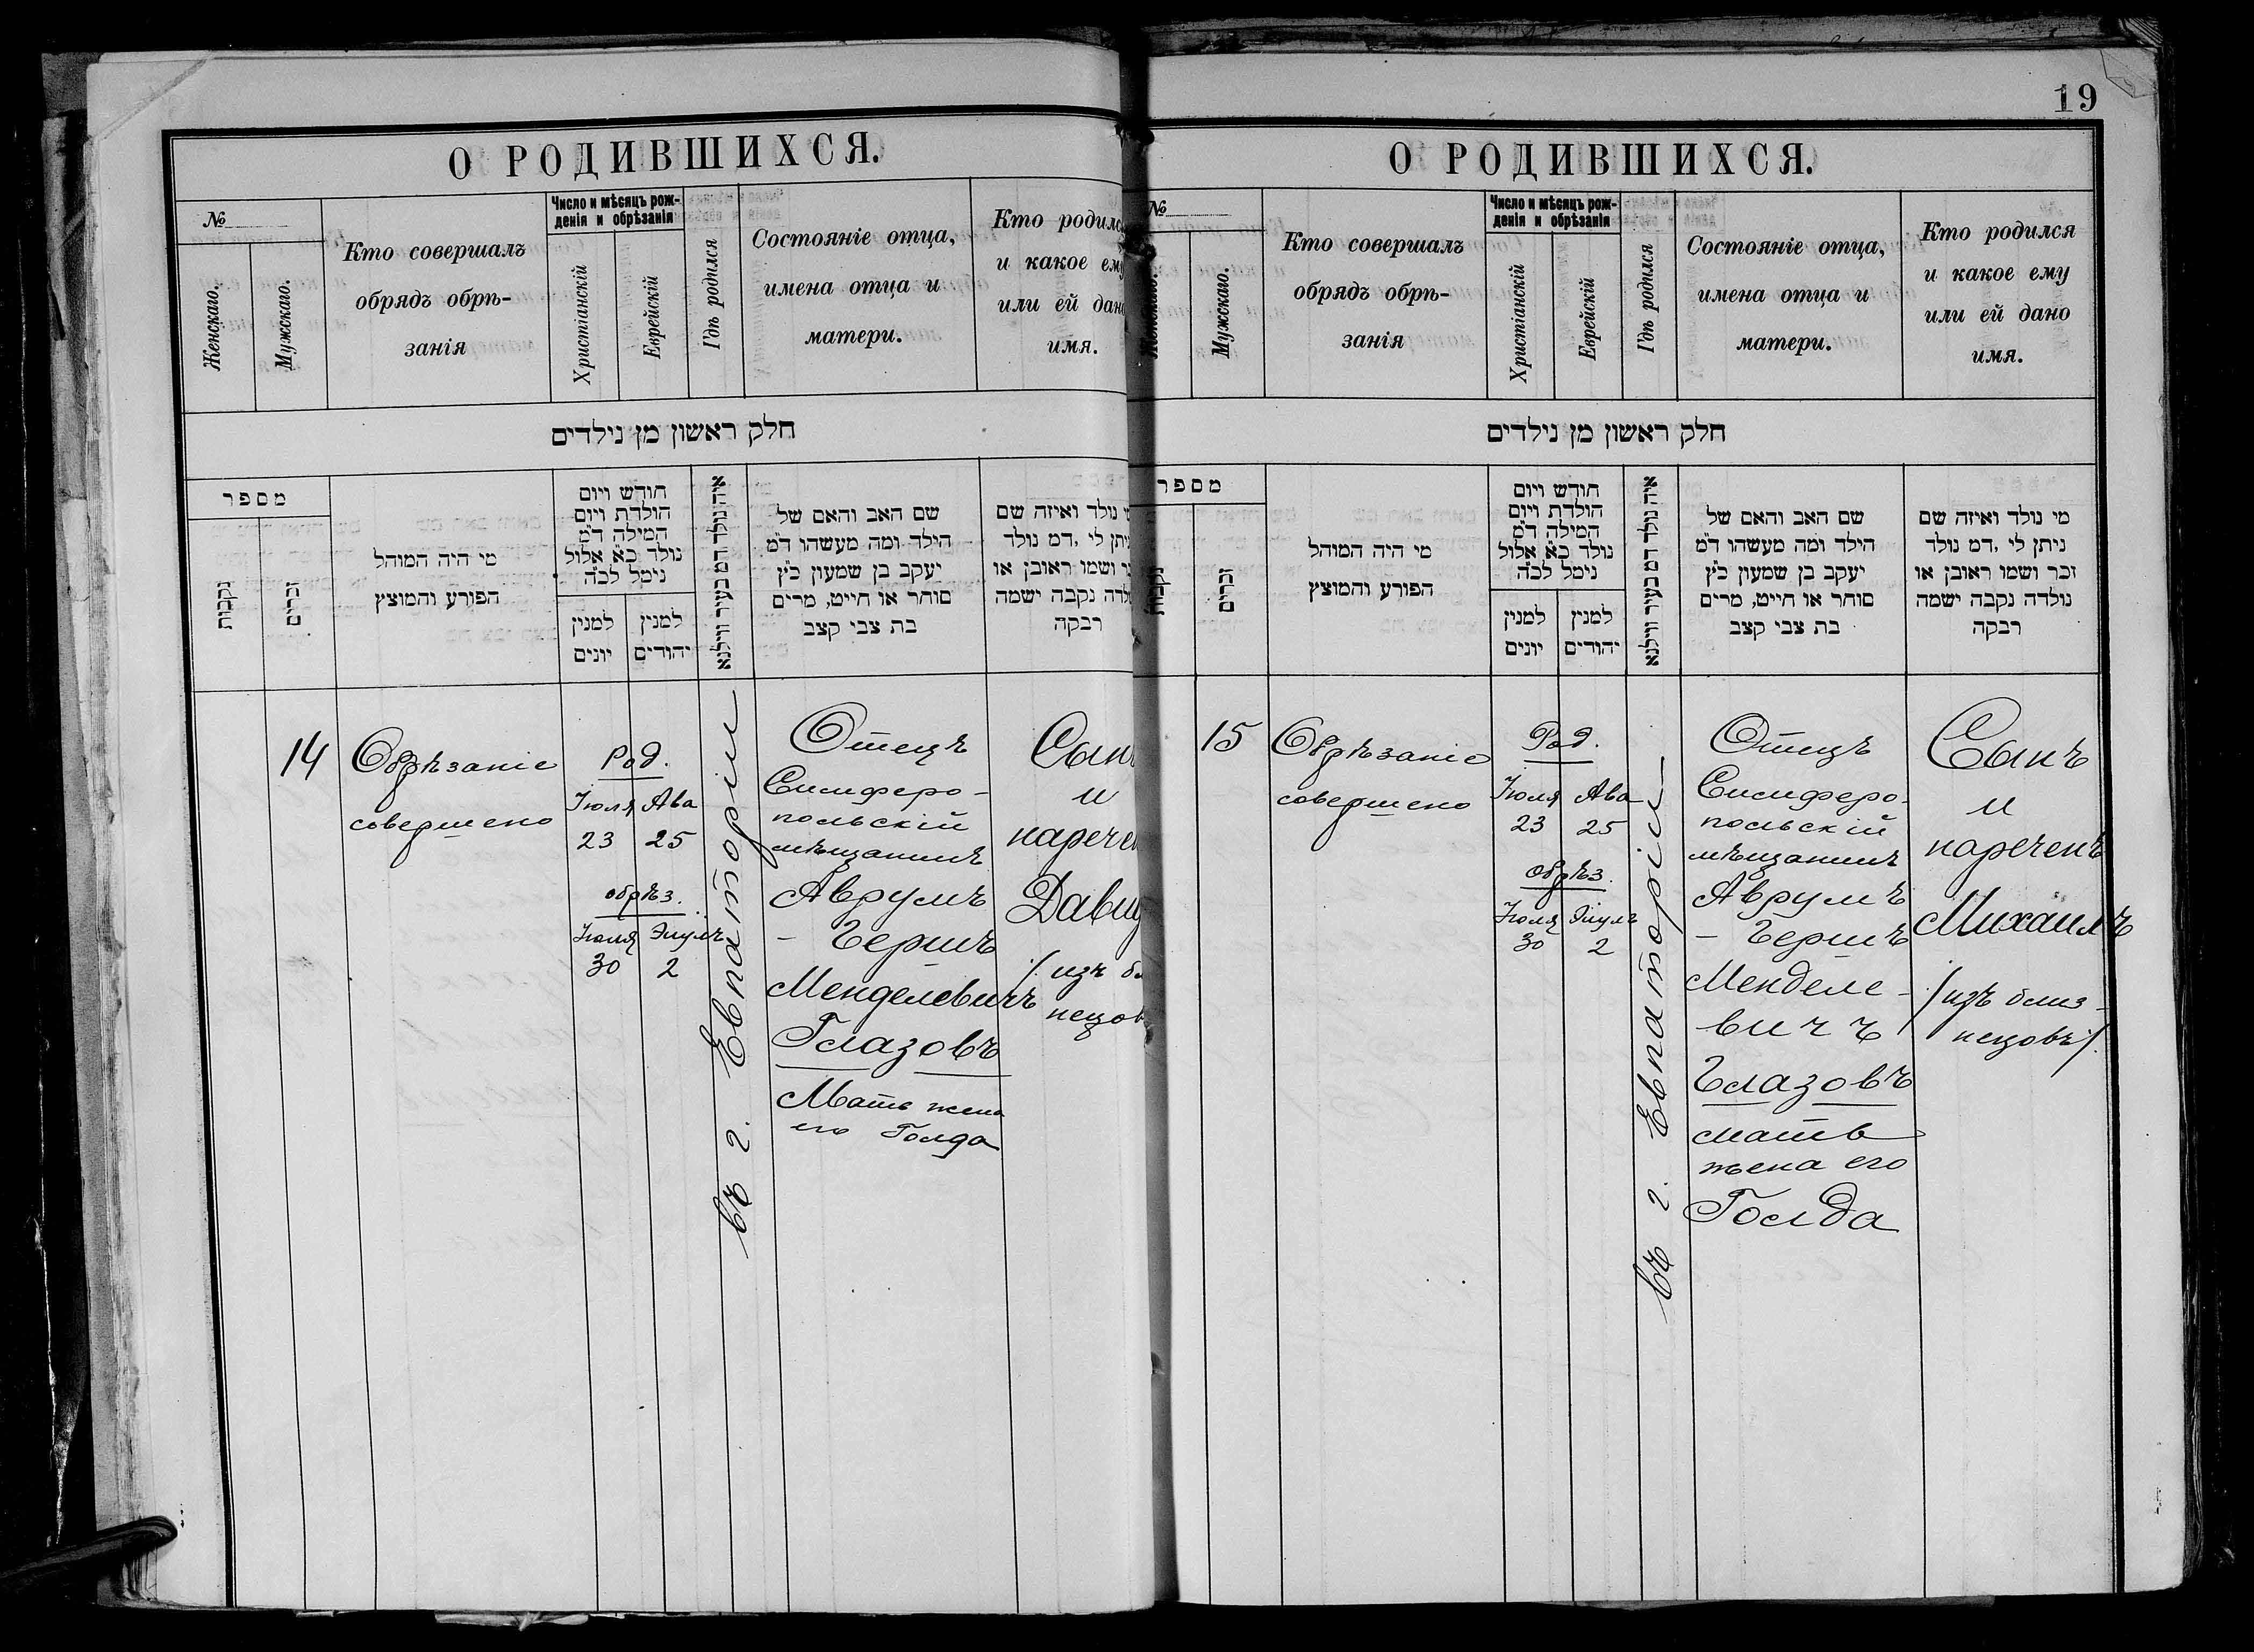 О РОДИВШИХСЯ.
№
Женскаго.
Мужскаго.
Кто совершалъ
обрядъ обрѣ-
занія
Число и мѣсяцъ рож-
денія и обрѣзанія
Христіанскій
Еврейскій
Гдѣ родился
Состояніе отца,
имена отца и
матери.
Кто родилс
и какое ему
или ей дано
имя.
חלק ראשון מן נילדים
מספר
נקבות
זכרים
מי היה המוהל
הפורע והמוצץ
חודש ויום
הולדת ויום
המילה ד״מ
נולד כ״א אלול
נימל לכ״ה
למנין
יונים
למנין
יהודים
איה נולד דמ בעיר ווילנא
שם האב והאם של
הילד ומה מעשהו ד״מ
יעקב בן שמעון כ״ץ
סוחר או חייט, מרים
בת צבי קצב
נולד ואיזה שם
ניתן לי ,דמ נולד
ושמו ראובן או
נקבה ישמה
רבקה
14
Обрѣзаніе
совершено
Род.
Іюля Ава
23 25
обрѣз.
Іюля Элулъ
30 2
въ г. Евпаторіи
Отецъ
Симферо-
польскій
мѣщанинъ
Аврумъ
- Гершъ
Менделевичъ
Глазовъ
Мать жена
его Голда
Сынъ
и
наречен
Давид
/изъ бл
нецов
19
О РОДИВШИХСЯ.
№
Женскаго.
Мужскаго.
Кто совершалъ
обрядъ обрѣ-
занія
Число и мѣсяцъ рож-
денія и обрѣзанія
Христіанскій
Еврейскій
Гдѣ родился
Состояніе отца,
имена отца и
матери.
Кто родился
и какое ему
или ей дано
имя.
חלק ראשון מן נילדים
מספר
נקבות
זכרים
מי היה המוהל
הפורע והמוצץ
חודש ויום
הולדת ויום
המילה ד״מ
נולד כ״א אלול
נימל לכ״ה
למנין
יונים
למנין
יהודים
איה נולד דמ בעיר ווילנא
שם האב והאם של
הילד ומה מעשהו ד״מ
יעקב בן שמעון כ״ץ
סוחר או חייט, מרים
בת צבי קצב
מי נולד ואיזה שם
ניתן לי ,דמ נולד
זכר ושמו ראובן או
נולדה נקבה ישמה
רבקה
15
Обрѣзаніе
совершено
Род.
Іюля Ава
23 25
обрѣз.
Іюля Элулъ
30 2
въ г. Евпаторіи
Отецъ
Симферо-
польскій
мѣщанинъ
Аврумъ
- Гершъ
Менделе-
вичъ
Глазовъ
мать
жена его
Голда
Сынъ
и
нареченъ
Михаилъ
/изъ близ-
нецовъ/.